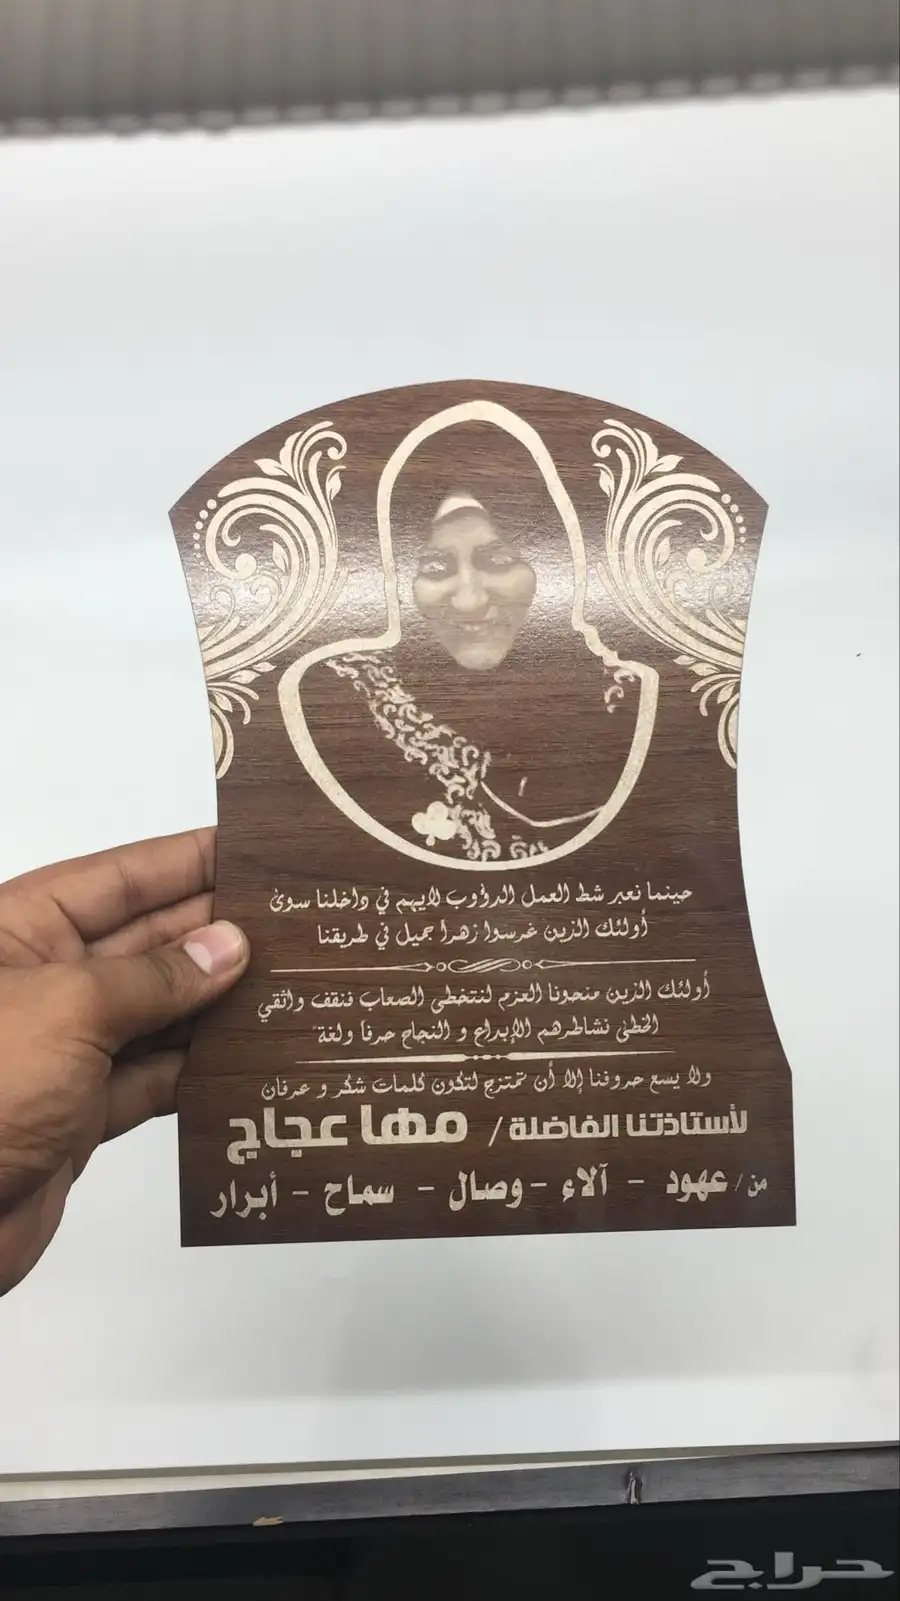 حينما نعبر شط العمل الدؤوب لايهم في داخلنا سوى
أولئك الذين غرسوا زهراً جميل في طريقنا
أولئك الذين منحونا العزم لنتخطى الصعاب فنقف واثقي
الخطى نشاطرهم الإبداع و النجاح حرفاً ولغة
ولا يسع حروفنا إلا أن تمتزج لتكون كلمات شكر و عرفان
لأستاذتنا الفاضلة / مها عجاج
من / عهود - آلاء - وصال - سماح - أبرار
حراج